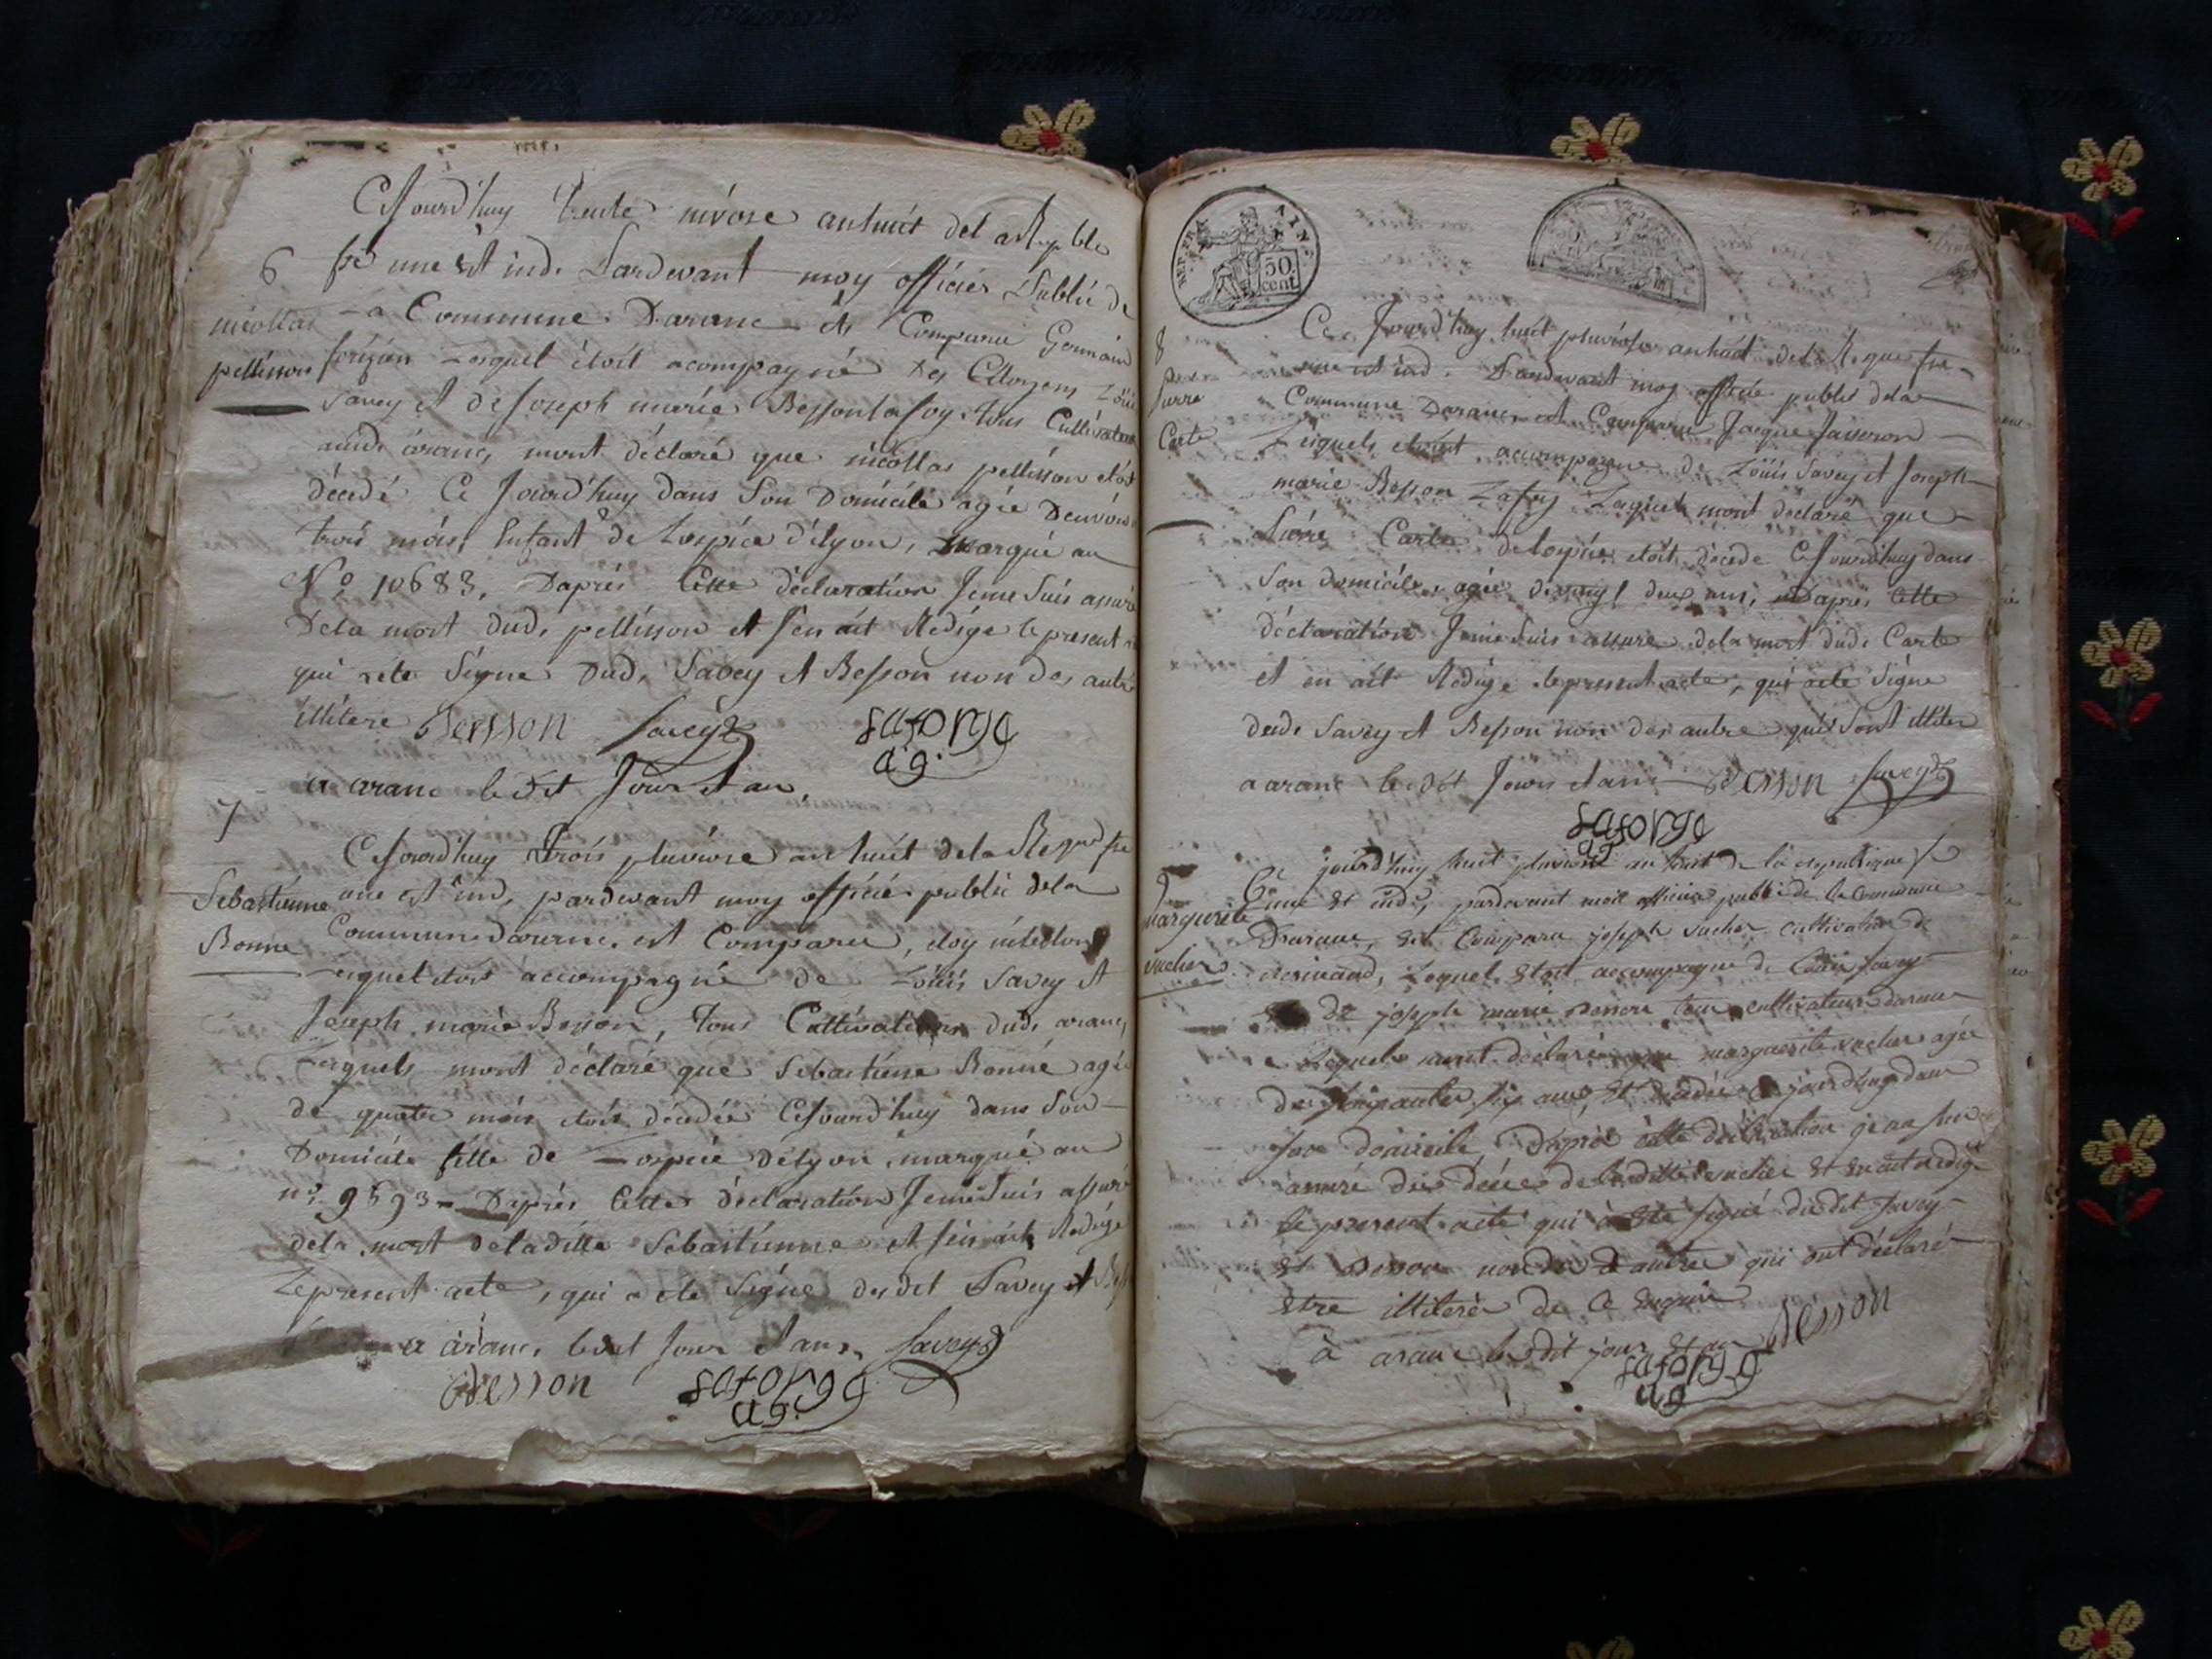 Cejourd'huy trente nivose an huit de la Repble
6
fse une et ind. Pardevant moy officier Public de
la Commune Daranc et Comparu Germain
nicollas
pellisson
lequel étoit acompagné des Citoyens Loüis
Savey et de Joseph marie Besson lafoy tous Cultivateurs
dud. aranc, mont déclaré que nicollas pellisson etoit
décedé Ce Jourd'huy dans Son Domicile agée Denviron
trois mois, Enfant de Lospice délyon, marqué au
No 10683, Daprés Cette déclaration Jeme Suis assuré
Dela mort dud. pellisson et Jen ait Redigé le present
qui a eté Signe Dud. Savey et Besson non des autre
illitere Besson Savey Laforge
a g.
a aranc le dit Jour et an,
7
Cejourd'huy Trois pluviose an huit dela Repque fse
Sebastienne
Bonne
une et ind, pardevant moy officié public dela
Commune daranc, est Comparu, eloy
lequel etoit accompagné de Loüis Savey et
Joseph marie Besson, Tous Cultivateurs dud. aranc,
Lesquels mont déclaré que Sebastienne Bonne agée
de quatre mois etoit décedée Cejourd'huy dans Son
Domicile fille de Lospice délyon, marqué au
no 9593 - Daprés Cette déclaration Jeme Suis assuré
dela mort deladitte Sebastienne et Jen ait Redigé
Lepresent acte, qui a eté Signe dudit Savey et Bess
a aranc, ledit Jour et an, Savey
Besson Laforge
a g.
REP. FRA
50
cent.
8
Ce Jourd'huy huit pluviose an huit dela Repque fse
pierre
Carte
une et ind. Pardevant moy officié public dela
Commune Daranc, est Comparu Jacque Jasseron
Lesquels etoint accompagné de Loüis Savey et Joseph
marie Besson Lafoy Lesquels mont déclaré que
Pierre Carte delospice etoit décedé Cejourd'huy dans
Son domicile, agée devingt deux ans, Daprés Cette
déclaration Jeme Suis assure dela mort dud. Carte
et en ait Redigé lepresent acte, qui aeté Signe
dud. Savey et Besson non des autre qui Sont illiter
a aranc le dit Jours et an Besson Savey
Laforge
a g
9
Ce jourd'huy huit pluviose an huit de la republique fse
marguerite
vucher
une et indi, pardevant moi officier public de la Commune
Daranc, est Comparu joseph vucher cultivateur de
Lequel etoit accompagné de Louis Savey
et de joseph marie Besson tous cultivateurs daranc
Lesquels mont déclaré que marguerite vucher agée
de cinquante six ans, est decedée ce jourd'huy dans
son domicile, D'après cette déclaration je me suis
assuré du décée de laditte vucher et en ait redigé
le present acte qui a été signé dudit Savey
et Besson non de autre qui ont déclaré
etre illiteré de ce enquis
à aranc ledit jour et an Besson
Laforge
a g